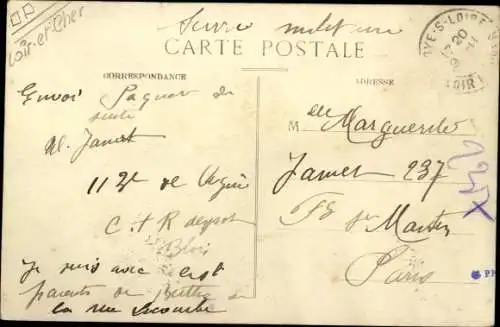 Loir-et-Cher
Service militaire
CARTE POSTALE
CORRESPONDANCE
Envoi Paquet de
suite
Al. Jamet
113e de ligne
C H R depot
Blois
Je suis avec
parents de Berthe
la rue
ADRESSE
M elle Marguerite
Jamet 237
Fg St Martin
Paris
20